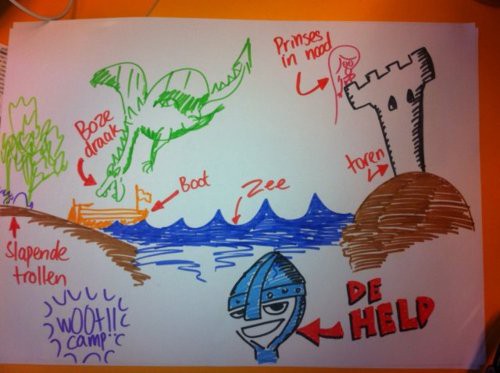 Prinses
in nood
Boze
draak
Boot
Zee
toren
Slapende
trollen
WOOT!!
camp
DE
HELD